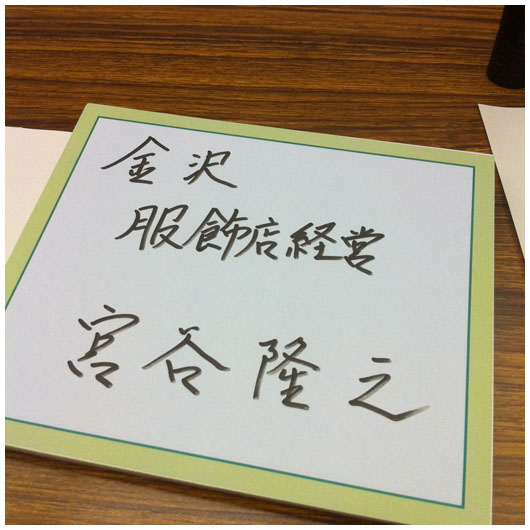 金沢
服飾店経営
宮谷隆之